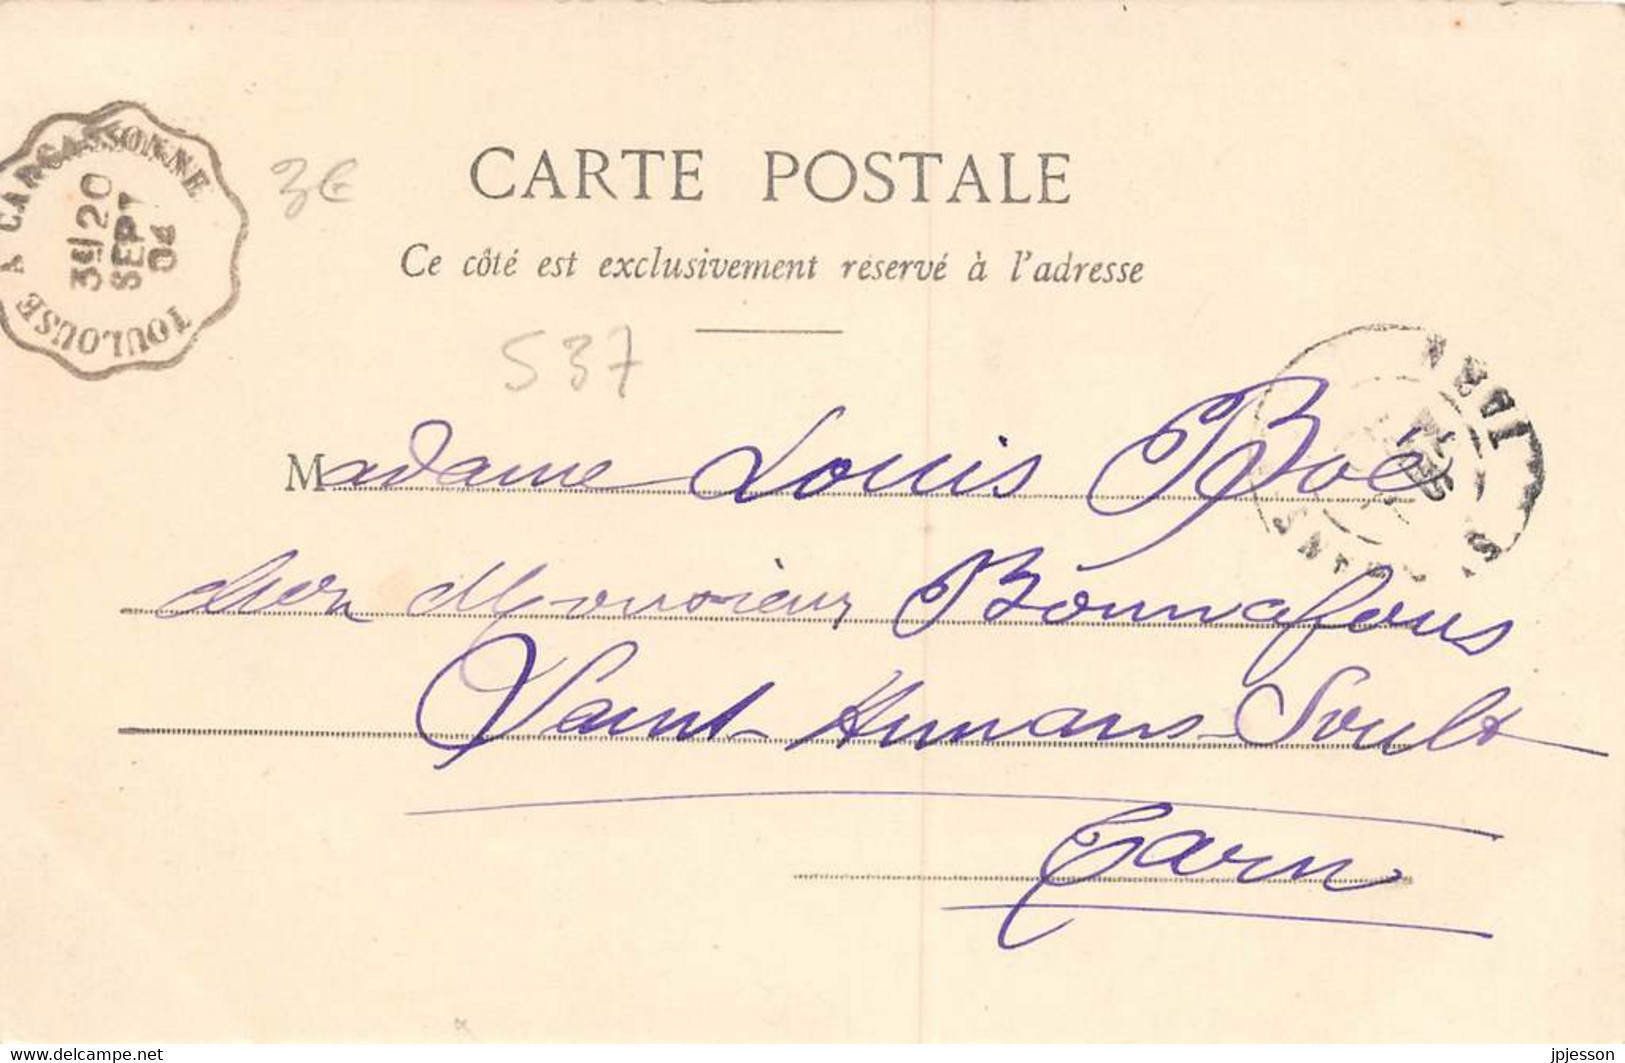 CARTE POSTALE
Ce côté est exclusivement réservé à l'adresse
TOULOUSE A CARCASSONNE
20
SEPT
04
3€
537
Madame Louis Boé
chez Monsieur Bonnafous
Saint-Amans-Soult
Tarn
TARN
delcampe.net
jpjesson